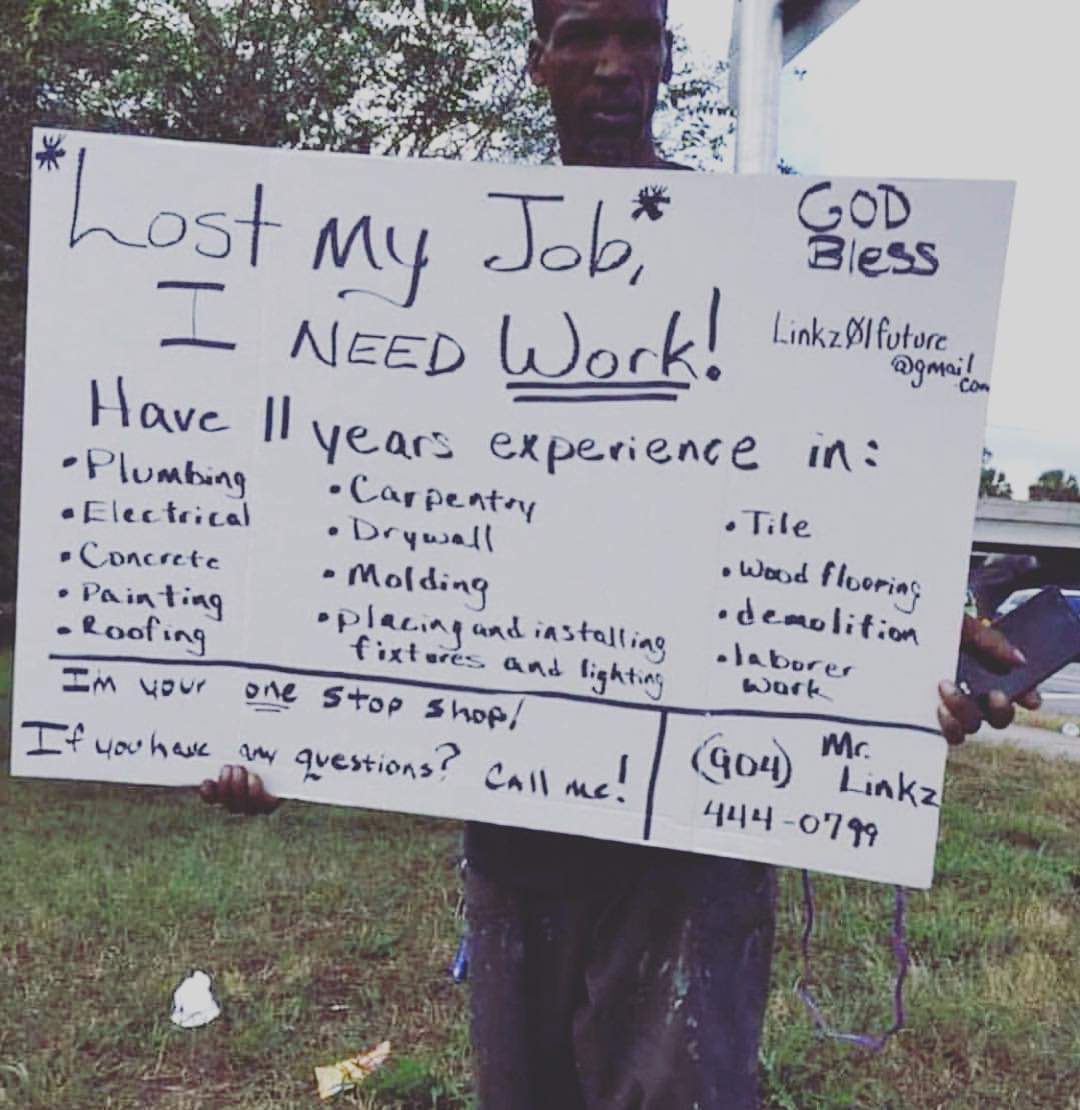 *Lost My Job,*
I NEED Work!
GOD
Bless
LinkzØ1future
@gmail
.com
Have 11 years experience in:
• Plumbing
• Electrical
• Concrete
• Painting
• Roofing
• Carpentry
• Drywall
• Molding
• placing and installing
fixtures and lighting
• Tile
• Wood flooring
• demolition
• laborer
work
I'm your one stop shop!
If you have any questions? Call me!
(904) Mr.
Linkz
444-0799